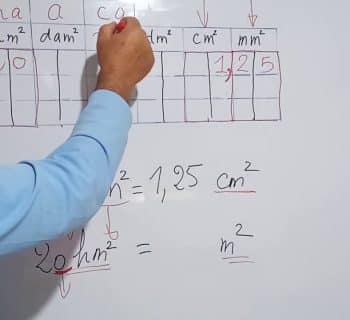 ha a ca
m² dam² dm² cm² mm²
0 1,25
m² = 1,25 cm²
20 hm² = m²